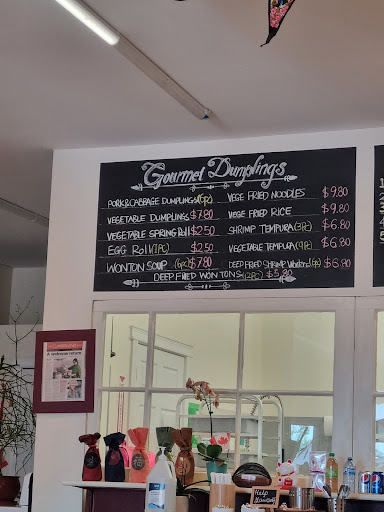 Gourmet Dumplings
PORK & CABBAGE DUMPLINGS (6pc)
VEGETABLE DUMPLINGS $7.80
VEGETABLE SPRING Roll $2.50
EGG Roll (1PC) $2.50
WONTON SOUP (6pc) $7.80
VEGE FRIED NOODLES $9.80
VEGE FRIED RICE $9.80
SHRIMP TEMPURA (3PC) $6.80
VEGETABLE TEMPURA (9PC) $6.80
DEEP FRIED SHRIMP Wontons (6pc) $6.80
DEEP FRIED WONTONS (12PC) $5.80
A welcome return
pepsi
Help